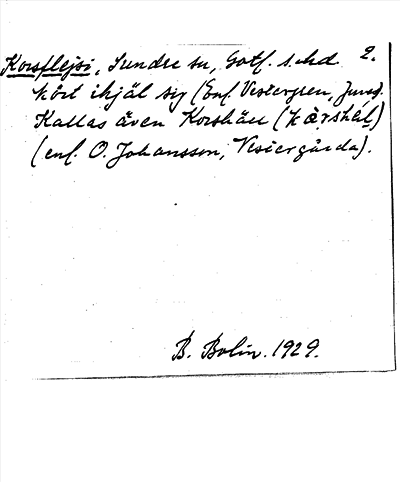 Korsflejsi, Sundre sn, Gotl. s. hd 2.
kört ihjäl sig (Enl. Vestergren, Jung.
Kallas även Korshäll
(enl. O. Johansson, Vestergårda).
B. Bolin. 1929.